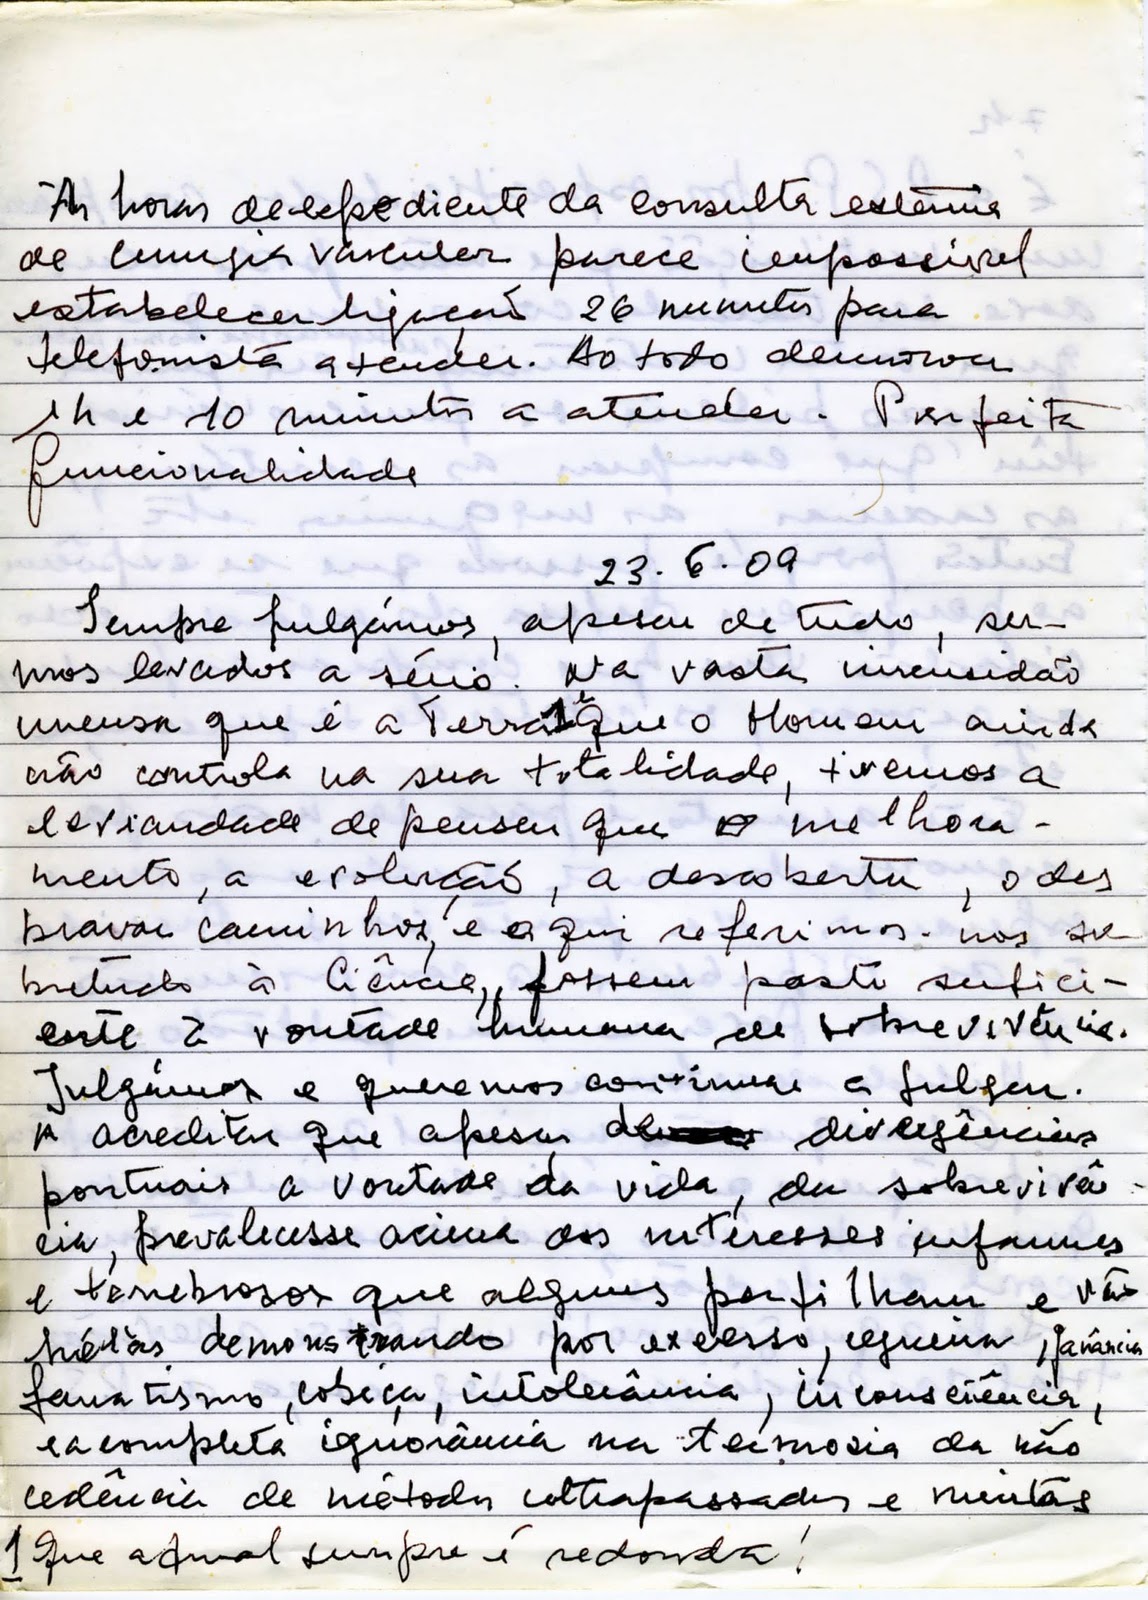 Às horas de expediente da consulta externa
de cirurgia vascular parece impossível
estabelecer ligação 26 minutos para
telefonista atender. Ao todo demorou
1h e 10 minutos a atender. Perfeita
funcionalidade
23.6.09
Sempre julgámos, apesar de tudo, ser-
mos levados a sério. Na vasta imensidão
imensa que é a Terra 1 que o Homem ainda
não controla na sua totalidade, tivemos a
leviandade de pensar que o melhora-
mento, a evolução, a descoberta, o des
bravar caminhos, e aqui referimo-nos so
bretudo à Ciência, fossem pasto sufici-
ente à vontade humana de sobrevivência.
Julgámos e queremos continuar a julgar.
A acreditar que apesar de divergências
pontuais a vontade da vida, da sobrevivên-
cia, prevalecesse acima dos interesses infames
e tenebrosos que alguns perfilham e vão
hélàs demonstrando por excesso, cegueira, ganância
fanatismo, cobiça, intolerância, inconsciência,
e a completa ignorância na teimosia da não
cedência de métodos ultrapassados e
1 Que afinal sempre é redonda!